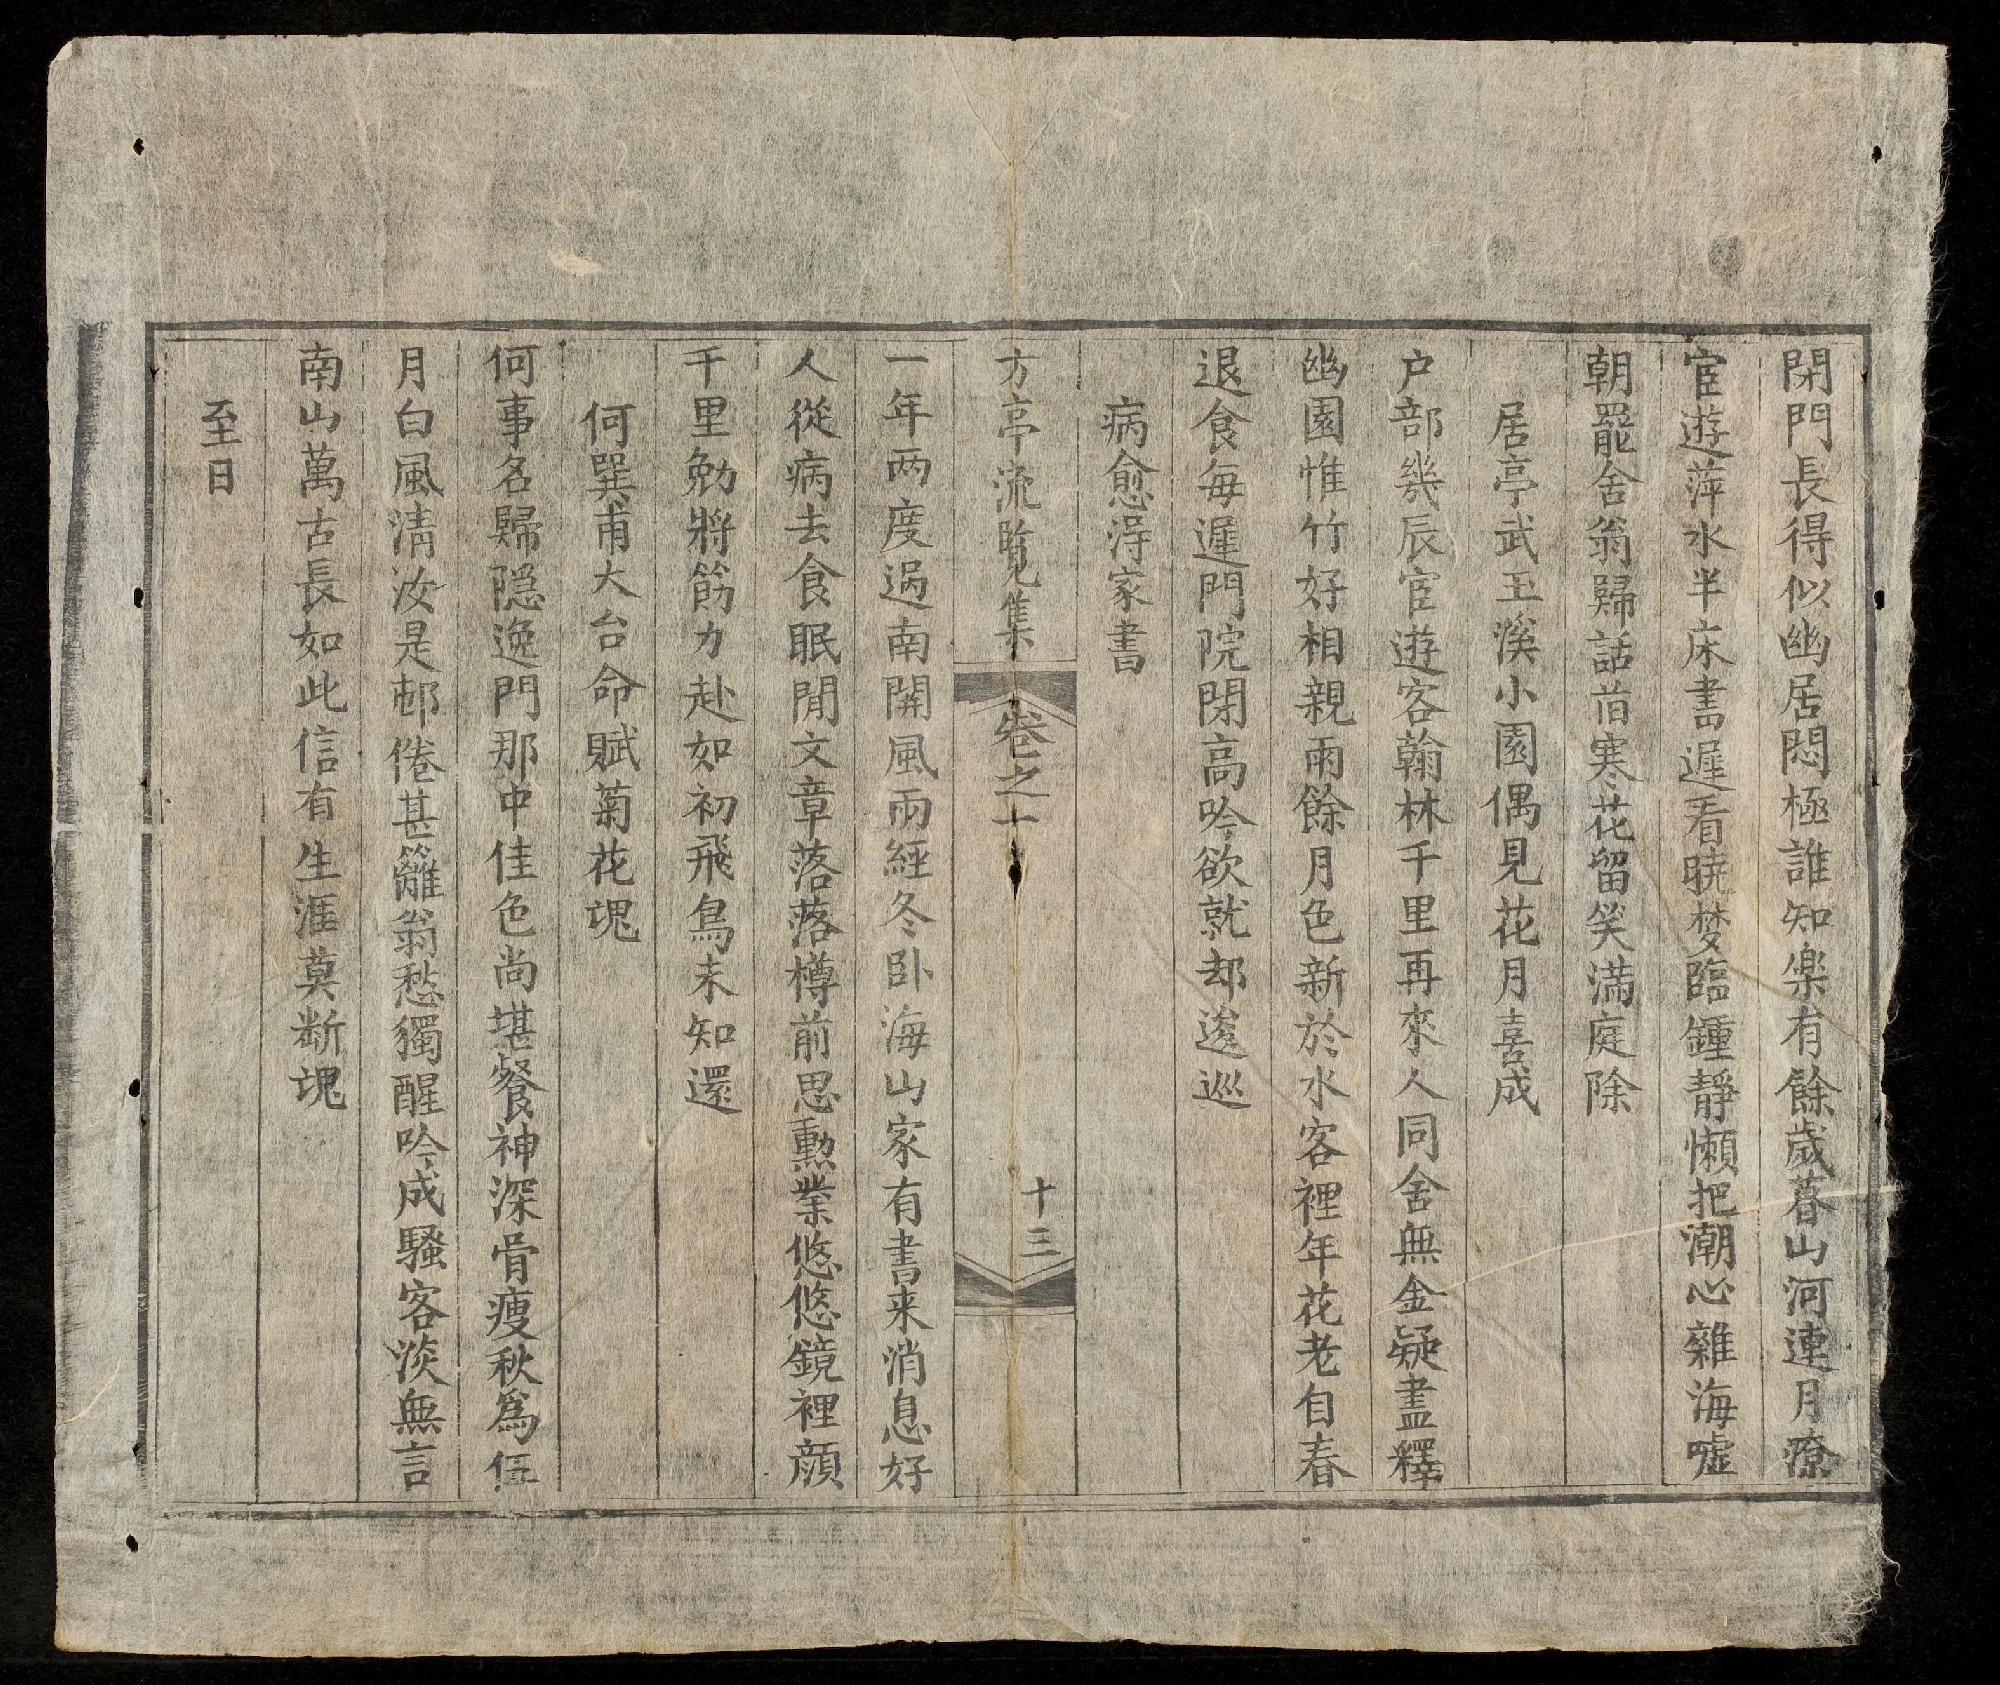 閑門長得似幽居悶極誰知樂有餘歲暮山河連月潦
宦遊萍水半床書遲看曉梦臨鍾靜懒把潮心雜海嘘
朝罷舍翁歸話旧寒花留笑满庭除
居亭武玉溪小園偶見花月喜成
户部幾辰宦遊客翰林千里再來人同舍無金疑盡釋
幽園惟竹好相親雨餘月色新於水客裡年花老自春
退食每遲門院閑高吟欲就却逡巡
病愈淂家書
方亭流覧集 卷之一 十三
一年两度過南關風雨經冬卧海山家有書来消息好
人從病去食眠閒文章落落樽前思勲業悠悠鏡裡顔
千里勉將筋力赴如初飛鳥未知還
何巽甫大台命賦菊花塊
何事名歸隠逸門那中佳色尚堪餐神深骨瘦秋爲伍
月白風清汝是邨倦甚籬翁愁獨醒吟成騷客淡無言
南山萬古長如此信有生涯莫断塊
至日